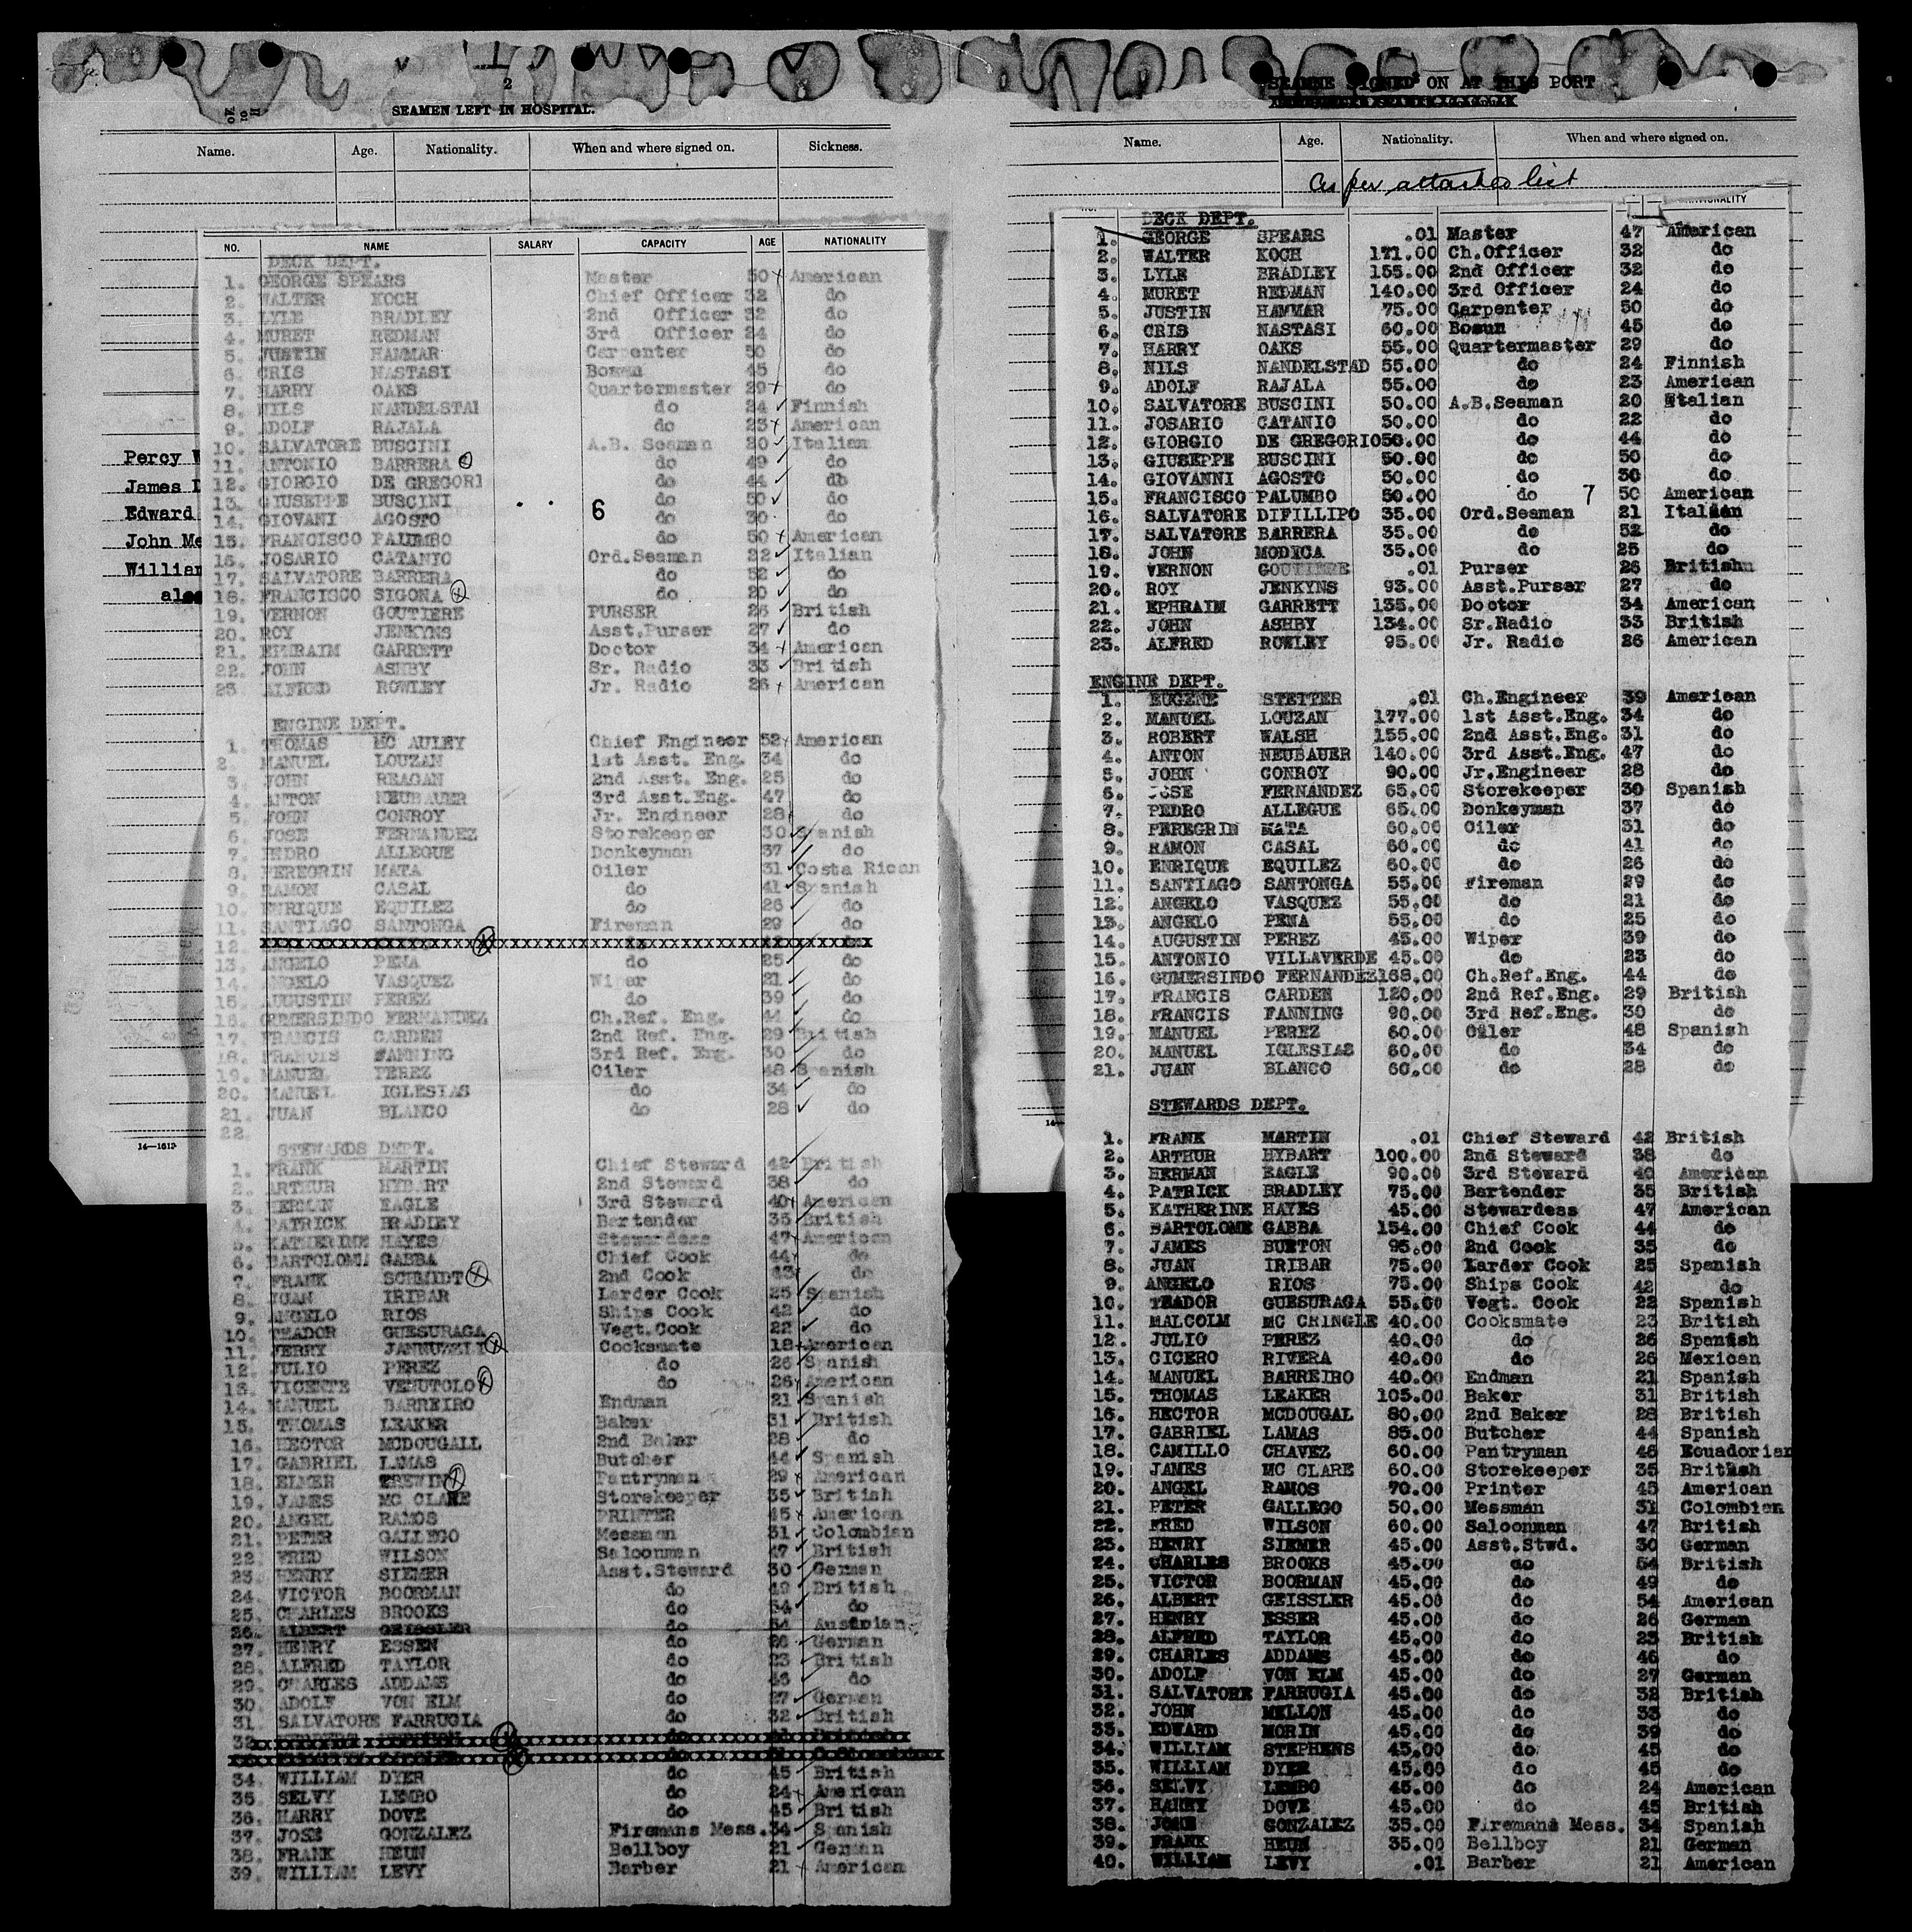 2
SEAMEN LEFT IN HOSPITAL.
Name. Age. Nationality. When and where signed on. Sickness.
Percy W
James
Edward
John Mc
William
also
14—1613
NO. NAME SALARY CAPACITY AGE NATIONALITY
DECK DEPT.
1. GEORGE SPEARS Master 50 American
2. WALTER KOCH Chief Officer 32 do
3. LYLE BRADLEY 2nd Officer 32 do
4. MURET REDMAN 3rd Officer 24 do
5. JUSTIN HAMMAR Carpenter 50 do
6. CRIS NASTASI Bosun 45 do
7. HARRY OAKS Quartermaster 29 do
8. NILS NANDELSTAD do 24 Finnish
9. ADOLF RAJALA do 23 American
10. SALVATORE BUSCINI A.B. Seaman 20 Italian
11. ANTONIO BARRERA do 49 do
12. GIORGIO DE GREGORI do 44 do
13. GIUSEPPE BUSCINI do 50 do
6
14. GIOVANI AGOSTO do 30 do
15. FRANCISCO PALUMBO do 50 American
16. JOSARIO CATANIO Ord.Seaman 22 Italian
17. SALVATORE BARRERA do 52 do
18. FRANCISCO SIGONA do 20 do
19. VERNON GOUTIERE PURSER 26 British
20. ROY JENKYNS Asst.Purser 27 do
21. EPHRAIM GARRETT Doctor 34 American
22. JOHN ASHBY Sr. Radio 33 British
23 ALFRED ROWLEY Jr. Radio 26 American
ENGINE DEPT.
1. THOMAS MC AULEY Chief Engineer 52 American
2. MANUEL LOUZAN 1st Asst. Eng. 34 do
3. JOHN REAGAN 2nd Asst. Eng. 25 do
4. ANTON NEUBAUER 3rd Asst.Eng. 47 do
5. JOHN CONROY Jr. Engineer 28 do
6. JOSE FERNANDEZ Storekeeper 30 Spanish
7. PEDRO ALLEGUE Donkeyman 37 do
8. PEREGRIN MATA Oiler 31 Costa Rican
9. RAMON CASAL do 41 Spanish
10. ENRIQUE EQUILEZ do 26 do
11. SANTIAGO SANTONGA Fireman 29 do
12.
13. ANGELO PENA do 25 do
14. ANGELO VASQUEZ Wiper 21 do
15. AUGUSTIN PEREZ do 39 do
16. GUMERSINDO FERNANDEZ Ch.Ref. Eng. 44 do
17. FRANCIS CARDEN 2nd Ref. Eng. 29 British
18. FRANCIS FANNING 3rd Ref. Eng. 30 do
19. MANUEL PEREZ Oiler 48 Spanish
20. MANUEL IGLESIAS do 34 do
21. JUAN BLANCO do 28 do
22.
STEWARDS DEPT.
1. FRANK MARTIN Chief Steward 42 British
2. ARTHUR HYBART 2nd Steward 38 do
3. HERMAN EAGLE 3rd Steward 40 American
4. PATRICK BRADLEY Bartender 35 British
5. KATHERINE HAYES Stewardess 47 American
6. BARTOLOME GABBA Chief Cook 44 do
7. FRANK SCHMIDT 2nd Cook 43 do
8. JUAN IRIBAR Larder Cook 25 Spanish
9. ANGELO RIOS Ships Cook 42 do
10. TEADOR GUESURAGA Vegt.Cook 22 do
11. JERRY JANNUZELI Cooksmate 18 American
12. JULIO PEREZ do 26 Spanish
13. VICENTE VENUTOLO do 26 American
14. MANUEL BARREIRO Endman 21 Spanish
15. THOMAS LEAKER Baker 31 British
16. HECTOR MCDOUGALL 2nd Baker 28 do
17. GABRIEL LAMAS Butcher 44 Spanish
18. ELMER TREWIN Pantryman 29 American
19. JAMES MC CLARE Storekeeper 35 British
20. ANGEL RAMOS PRINTER 45 American
21. PETER GALLEGO Messman 31 Colombian
22. FRED WILSON Saloonman 47 British
23. HENRY SIEMER Asst.Steward 30 German
24. VICTOR BOORMAN do 49 British
25. CHARLES BROOKS do 54 do
26. ALBERT GEISSLER do 54 Austrian
27. HENRY ESSEN do 26 German
28. ALFRED TAYLOR do 23 British
29. CHARLES ADDAMS do 46 do
30. ADOLF VON ELM do 27 German
31. SALVATORE FARRUGIA do 32 British
32
34. WILLIAM DYER do 45 British
35. SELVY LEMBO do 24 American
36. HARRY DOVE do 45 British
37. JOSE GONZALEZ Firemans Mess. 34 Spanish
38. FRANK HEUN Bellboy 21 German
39. WILLIAM LEVY Barber 21 American
SEAMEN SIGNED ON AT THIS PORT
Name. Age. Nationality. When and where signed on.
As per attached list
NATIONALITY
DECK DEPT.
1. GEORGE SPEARS .01 Master 47 American
2. WALTER KOCH 171.00 Ch.Officer 32 do
3. LYLE BRADLEY 155.00 2nd Officer 32 do
4. MURET REDMAN 140.00 3rd Officer 24 do
5. JUSTIN HAMMAR 75.00 Carpenter 50 do
6. CRIS NASTASI 60.00 Bosun 45 do
7. HARRY OAKS 55.00 Quartermaster 29 do
8. NILS NANDELSTAD 55.00 do 24 Finnish
9. ADOLF RAJALA 55.00 do 23 American
10. SALVATORE BUSCINI 50.00 A.B.Seaman 20 Italian
11. JOSARIO CATANIO 50.00 do 22 do
12. GIORGIO DE GREGORIO 50.00 do 44 do
13. GIUSEPPE BUSCINI 50.00 do 50 do
14. GIOVANNI AGOSTO 50.00 do 30 do
15. FRANCISCO PALUMBO 50.00 do 7 50 American
16. SALVATORE DIFILLIPO 35.00 Ord.Seaman 21 Italian
17. SALVATORE BARRERA 35.00 do 52 do
18. JOHN MODICA 35.00 do 25 do
19. VERNON GOUTIERE .01 Purser 26 British
20. ROY JENKYNS 93.00 Asst.Purser 27 do
21. EPHRAIM GARRETT 135.00 Doctor 34 American
22. JOHN ASHBY 134.00 Sr.Radio 33 British
23. ALFRED ROWLEY 95.00 Jr. Radio 26 American
ENGINE DEPT.
1. EUGENE STETTER .01 Ch.Engineer 39 American
2. MANUEL LOUZAN 177.00 1st Asst.Eng. 34 do
3. ROBERT WALSH 155.00 2nd Asst.Eng. 31 do
4. ANTON NEUBAUER 140.00 3rd Asst.Eng. 47 do
5. JOHN CONROY 90.00 Jr.Engineer 28 do
6. JOSE FERNANDEZ 65.00 Storekeeper 30 Spanish
7. PEDRO ALLEGUE 65.00 Donkeyman 37 do
8. PEREGRIN MATA 60.00 Oiler 31 do
9. RAMON CASAL 60.00 do 41 do
10. ENRIQUE EQUILEZ 60.00 do 26 do
11. SANTIAGO SANTONGA 55.00 Fireman 29 do
12. ANGELO VASQUEZ 55.00 do 21 do
13. ANGELO PENA 55.00 do 25 do
14. AUGUSTIN PEREZ 45.00 Wiper 39 do
15. ANTONIO VILLAVERDE 45.00 do 23 do
16. GUMERSINDO FERNANDEZ 168.00 Ch.Ref.Eng. 44 do
17. FRANCIS CARDEN 120.00 2nd Ref.Eng. 29 British
18. FRANCIS FANNING 90.00 3rd Ref.Eng. 30 do
19. MANUEL PEREZ 60.00 Oiler 48 Spanish
20. MANUEL IGLESIAS 60.00 do 34 do
21. JUAN BLANCO 60.00 do 28 do
STEWARDS DEPT.
1. FRANK MARTIN .01 Chief Steward 42 British
2. ARTHUR HYBART 100.00 2nd Steward 38 do
3. HERMAN EAGLE 90.00 3rd Steward 40 American
4. PATRICK BRADLEY 75.00 Bartender 35 British
5. KATHERINE HAYES 45.00 Stewardess 47 American
6. BARTOLOME GABBA 154.00 Chief Cook 44 do
7. JAMES BURTON 95.00 2nd Cook 35 do
8. JUAN IRIBAR 75.00 Larder Cook 25 Spanish
9. ANGELO RIOS 75.00 Ships Cook 42 do
10. TEADOR GUESURAGA 55.00 Vegt. Cook 22 Spanish
11. MALCOLM MC CRINGLE 40.00 Cooksmate 23 British
12. JULIO PEREZ 40.00 do 26 Spanish
13. CICERO RIVERA 40.00 do 26 Mexican
14. MANUEL BARREIRO 40.00 Endman 21 Spanish
15. THOMAS LEAKER 105.00 Baker 31 British
16. HECTOR MCDOUGAL 80.00 2nd Baker 28 British
17. GABRIEL LAMAS 85.00 Butcher 44 Spanish
18. CAMILLO CHAVEZ 60.00 Pantryman 46 Ecuadorian
19. JAMES MC CLARE 60.00 Storekeeper 35 British
20. ANGEL RAMOS 70.00 Printer 45 American
21. PETER GALLEGO 50.00 Messman 31 Colombian
22. FRED WILSON 60.00 Saloonman 47 British
23. HENRY SIEMER 45.00 Asst.Stwd. 30 German
24. CHARLES BROOKS 45.00 do 54 British
25. VICTOR BOORMAN 45.00 do 49 do
26. ALBERT GEISSLER 45.00 do 54 American
27. HENRY ESSER 45.00 do 26 German
28. ALFRED TAYLOR 45.00 do 23 British
29. CHARLES ADDAMS 45.00 do 46 do
30. ADOLF VON ELM 45.00 do 27 German
31. SALVATORE FARRUGIA 45.00 do 32 British
32. JOHN MELLON 45.00 do 33 do
33. EDWARD MORIN 45.00 do 39 do
34. WILLIAM STEPHENS 45.00 do 45 do
35. WILLIAM DYER 45.00 do 45 do
36. SELVY LEMBO 45.00 do 24 American
37. HARRY DOVE 45.00 do 45 British
38. JOSE GONZALEZ 35.00 Firemans Mess. 34 Spanish
39. FRANK HEUN 35.00 Bellboy 21 German
40. WILLIAM LEVY .01 Barber 21 American